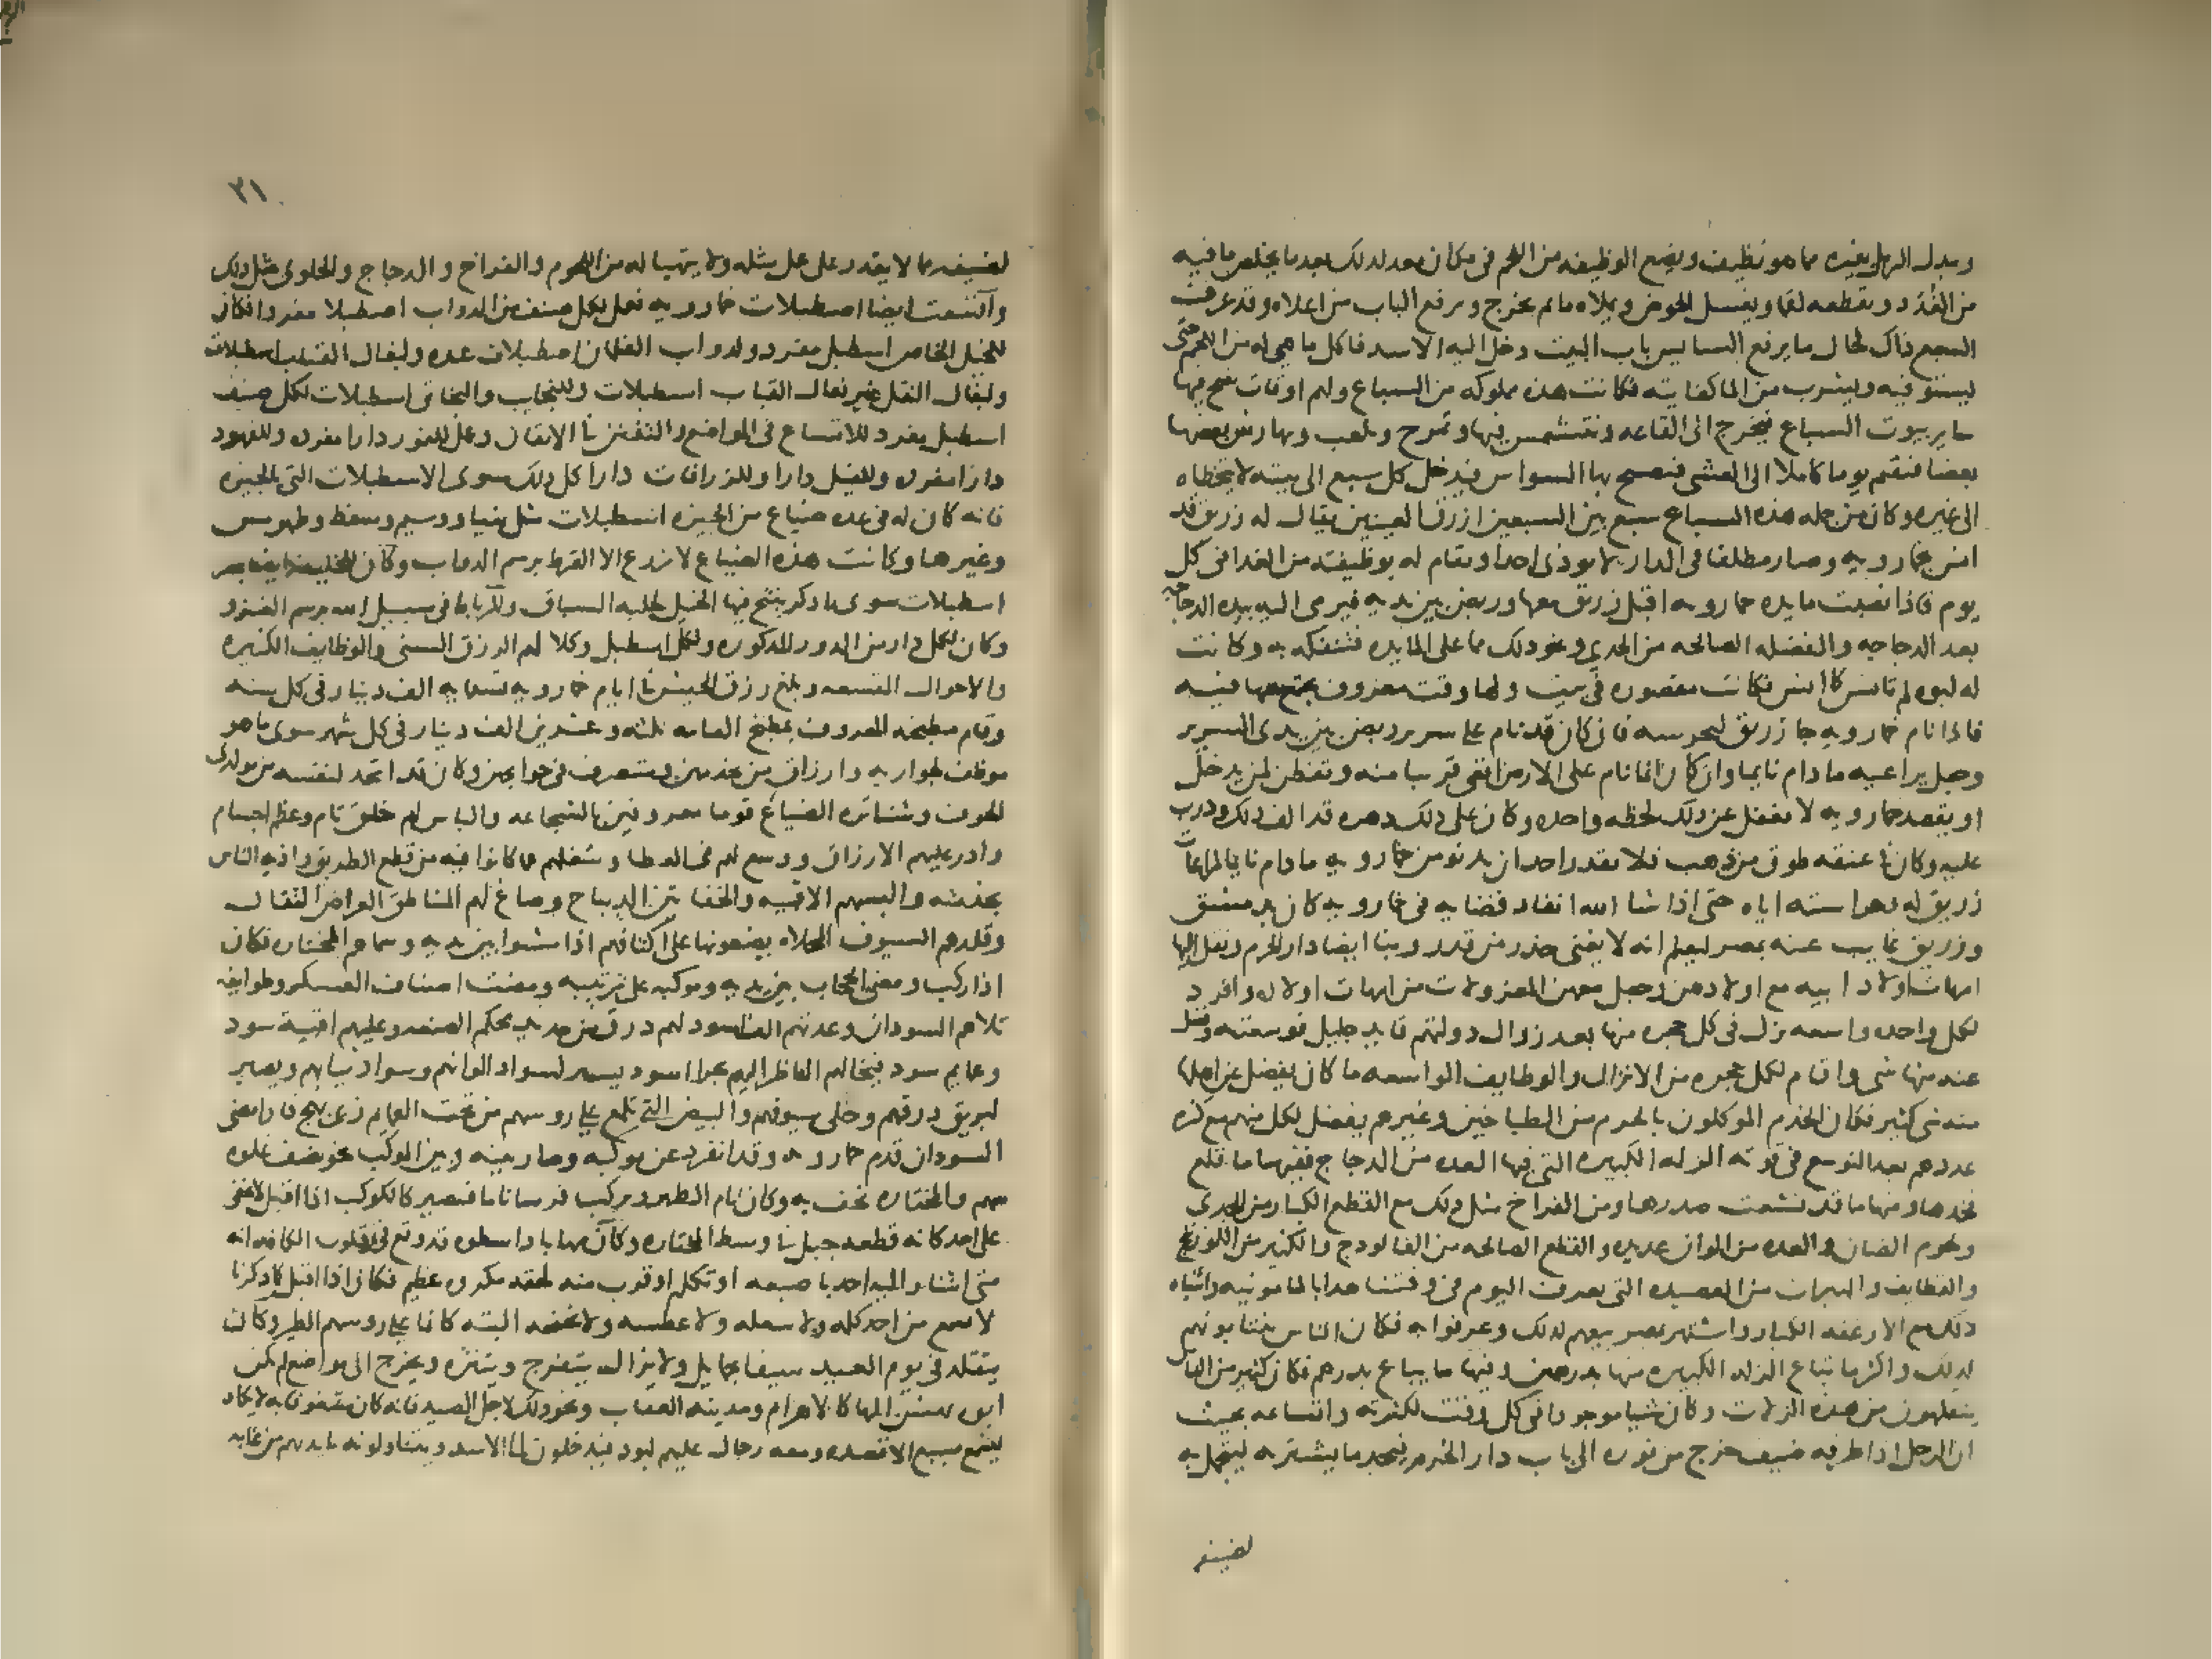 ويبدل الرمل بغيره مما هو نظيف ويضع الوظيفه من اللحم في مكان معد لذلك بعد ما يخلص ما فيه
من الغدد ويقطعه لقما ويغسل الحوض ويملاه ما ثم يخرج ويرفع الباب من اعلاه وقد عرف
السبع ذاك فحال ما يرفع السايس باب البيت دخل اليه الاسد فاكل ما هي له من اللحم حتى
يستوفيه ويشرب من الما كفايته فكانت هذه مملوكه من السباع ولهم اوقات يفتح فيها
ساير بيوت السباع فتخرج الى القاعه وتتشمس فيها وتمرح وتلعب ويهارش بعضها
بعضا فتقيم يوما كاملا الى العشى فيصيح بها السواس فيدخل كل سبع الى بيته لا يتخطاه
الى غيره وكان من جمله هذه السباع سبع بين السبعين ازرق العينين يقال له زريق قد
انس بخمارويه وصار مطلقا في الدار لا يوذى احدا ويقام له بوظيفته من الغدا في كل
يوم فاذا نصبت مايده خمارويه اقبل زريق معها وربض بين يديه فيرمى اليه بيده الدجاجه
بعد الدجاجه والفضله الصالحه من الجدي ونحو ذلك مما على المايده فيتفكه به وكانت
له لبوه لم تانس كما انس فكانت مقصوره في بيت ولها وقت معروف يجتمع معها فيه
فاذا نام خمارويه جا زريق ليحرسه فان كان قد نام على سرير ربض بين يدي السرير
وجعل يراعيه ما دام نايما وان كان انما نام على الارض اقعى قريبا منه وتفطن لمن يدخل
او يقصد خمارويه لا يغفل عن ذلك لحظه واحده وكان على ذلك دهره قد الف ذلك ودرب
عليه وكان في عنقه طوق من ذهب فلا يقدر احد ان يدنو من خمارويه ما دام نايما لمراعاة
زريق له وحراسته اياه حتى اذا شا الله انفاذ قضايه في خمارويه كان بدمشق
وزريق غايب عنه بمصر ليعلم انه لا يغنى حذر من قدر وبنا ايضا دار الحرم ونقل اليها
امهات اولاد ابيه مع اولادهن وجعل معهن المعزولات من امهات اولاده وافرد
لكل واحده واسعه نزل في كل حجره منها بعد زوال دولتهم قايد جليل فوسعته وفضل
عنه منها شي واقام لكل حجره من الانزال والوظايف الواسعه ما كان يفضل عن اهلها
منه شي كثير فكان الخدم الموكلون بالحرم من الطباخين وغيرهم يفضل لكل منهم مع كثره
عددهم بعد التوسع في قوته الزله الكبيره التي فيها العده من الدجاج فمنها ما قلع
فخدها ومنها ما قد تشعث صدرها ومن الفراخ مثل ذلك مع القطع الكبار من الجدى
ولحوم الضان والعده من الوان عديده والقطع الصالحه من الفالودج والكثير من اللوزينج
والقطايف والهبرات من العصيده التي تعرف اليوم في وقتنا هذا بالمامونيه واشباه
ذلك مع الارغفه الكبار واشتهر بمصر بيعهم لذلك وعرفوا به فكان الناس يتنابونهم
لذلك واكثر ما تباع الزله الكبيره منها بدرهمين ومنها ما يباع بدرهم فكان كثير من الناس
يتفكهون من هذه الزلات وكان شيا موجودا في كل وقت لكثرته واتساعه بحيث
ان الرجل اذا طرقه ضيف خرج من فوره الى باب دار الحرم فيجد ما يشتريه ليتجمل به
لضيفه
٣١
لضيفه مما لا يقدر على عمل مثله ولا يتهيا له من اللحوم والفراخ والدجاج والحلوى مثل ذلك
واتسعت ايضا اصطبلات خمارويه فعمل لكل صنف من الدواب اصطبلا مفردا فكان
للخيل الخاص اسطبل مفرد ولدواب الغلمان اصطبلات عده ولبغال القباب اسطبلات
ولبغال النقل غير بغال القباب اسطبلات وللنجايب والبخاتى اسطبلات لكل صنف
اسطبل مفرد للاتساع في المواضع والتفنن في الاتقان وعمل للنمور دارا مفرده وللفهود
دارا مفرده وللفيل دارا وللزرافات دارا كل ذلك سوى الاسطبلات التي بالجيزه
فانه كان له في عده ضياع من الجيزه اسطبلات مثل نهيا ووسيم وسفط وطهرمس
وغيرها وكانت هذه الضياع لا تزرع الا القرط برسم الدواب وكان للخليفه ايضا بمصر
اسطبلات سوى ما ذكر ينتج فيها الخيل لحلبه السباق وللرباط في سبيل الله برسم الغزو
وكان لكل دار من الدور المذكوره ولكل اسطبل وكلا لهم الرزق السنى والوظايف الكثيره
والاموال المتسعه وبلغ رزق الجيش في ايام خمارويه تسعمايه الف دينار في كل سنه
وقام مطبخه المعروف بمطبخ العامه بثلثه وعشرين الف دينار في كل شهر سوى ما هو
موظف لجواريه وارزاق من يخدمهن ويتصرف في حوايجهن وكان قد اتخذ لنفسه من مولدى
الحوف وشناتره الضياع قوما معروفين بالشجاعه والباس لهم خلق تام وعظم اجسام
وادر عليهم الارزاق ووسع لهم في العطا وشغلهم عما كانوا فيه من قطع الطريق واذيه الناس
بخدمته والبسهم الاقبيه والخفاتين الديباج وصاغ لهم المناطق العراض الثقال
وقلدهم السيوف المحلاه يضعونها على اكتافهم اذا مشوا بين يديه وسماهم المختاره فكان
اذا ركب ومضى الحجاب بين يديه وموكبه على ترتيبه ومضت اصناف العسكر وطوايفه
تلاهم السودان وعدتهم الف اسود لهم درق من حديد محكم الصنعه وعليهم اقبية سود
وعمايم سود فيخالهم الناظر اليهم بحرا اسود يسير لسواد الوانهم وسواد ثيابهم ويصير
لبريق درقهم وحلى سيوفهم والبيض التي تلمع على روسهم من تحت العمايم زى بهج فاذا مضى
السودان قدم خمارويه وقد انفرد عن موكبه وصار بينه وبين الموكب نحو نصف غلوه
سهم والمختاره تحف به وكان تام الظهر ويركب فرسا تاما فيصير كالكوكب اذا اقبل لا يخفى
على احد كانه قطعه جبل في وسط المختاره وكان مهابا ذا سطوه قد وقع في قلوب الكافه انه
متى اشار اليه احد باصبعه او تكلم او قرب منه لحقه مكروه عظيم فكان اذا اقبل كما ذكرنا
لا يسمع من احد كلمه ولا سعله ولا عطسه ولا نحنحه البته كانما على روسهم الطير وكان
يتقلد في يوم العيد سيفا بحمايل ولا يزال يتفرج ويتنزه ويخرج الى مواضع لم يكن
ابوه يهش اليها كالاهرام ومدينه العقاب ونحو ذلك لاجل الصيد فانه كان مشغوفا به لا يكاد
يسمع بسبع الا قصده ومعه رجال عليهم لبود فيدخلون الى الاسد ويتناولونه بايديهم من غابه